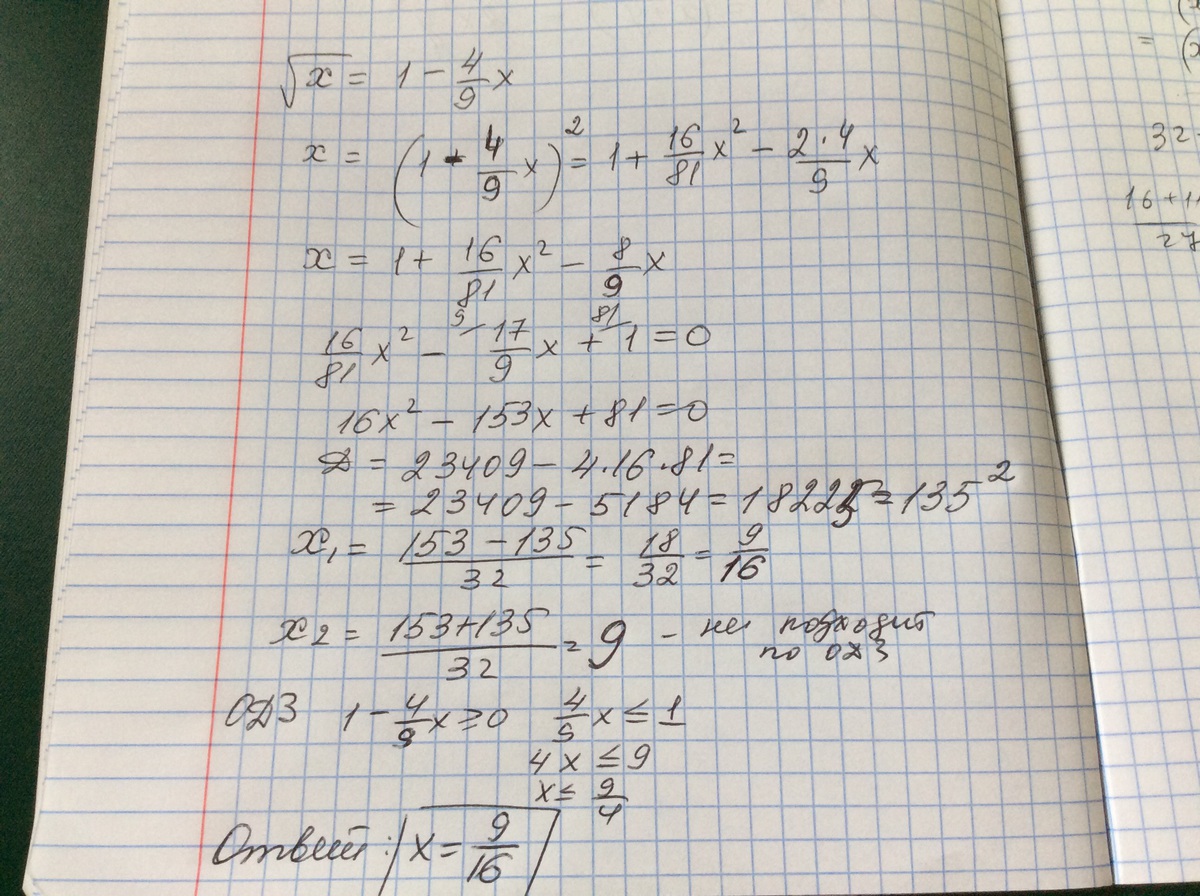 √x = 1 - 4/9 x
x = (1 - 4/9 x)² = 1 + 16/81 x² - 2·4/9 x
x = 1 + 16/81 x² - 8/9 x
16/81 x² - 17/9 x + 1 = 0
16x² - 153x + 81 = 0
D = 23409 - 4·16·81 =
= 23409 - 5184 = 18225 = 135²
x₁ = (153 - 135)/32 = 18/32 = 9/16
x₂ = (153 + 135)/32 = 9 - не подходит
по ОДЗ
ОДЗ 1 - 4/9 x ≥ 0 4/9 x ≤ 1
4x ≤ 9
x ≤ 9/4
Ответ: x = 9/16
=
32
16 + 11
27